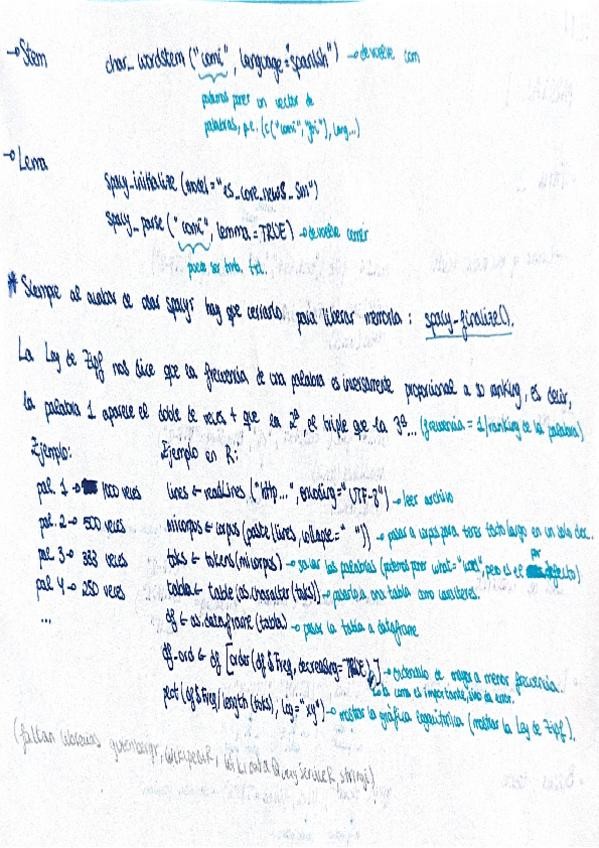 → Stem char_wordstem ("comí", language="spanish") → devuelve com
podemos poner un vector de
palabras, p.e. (c("comí", "fui"), lang...)
→ Lema
spacy_initialize (model="es_core_news_sm")
spacy_parse ("comí", lemma=TRUE) → devuelve comer
puede ser tmb. txt.
* Siempre al acabar de usar spacyr hay que cerrarlo para liberar memoria: spacy_finalize().
La Ley de Zipf nos dice que la frecuencia de una palabra es inversamente proporcional a su ranking, es decir,
la palabra 1 aparece el doble de veces + que la 2ª, el triple que la 3ª... (frecuencia = 1/ranking de la palabra)
Ejemplo: Ejemplo en R:
pal. 1 → 1000 veces lines ← readLines ("http...", encoding="UTF-8") → leer archivo
pal. 2 → 500 veces micorpus ← corpus (paste(lines, collapse=" ")) → pasar a corpus para tener texto largo en un solo doc.
pal. 3 → 333 veces toks ← tokens (micorpus) → sacar las palabras (podemos poner what="word", pero es el por defecto)
pal. 4 → 250 veces tabla ← table (as.character (toks)) → pasarlo a una tabla como caracteres.
... df ← as.data.frame (tabla) → pasar la tabla a dataframe
df_ord ← df [order (df$Freq, decreasing=TRUE),] → ordenarlo de mayor a menor frecuencia.
la coma es importante, sino da error.
plot (df$Freq/length (toks), log="xy") → mostrar la gráfica logarítmica (mostrar la Ley de Zipf).
(faltan librerías gutenbergr, WikipediR, WikidataQueryServiceR, stringi)